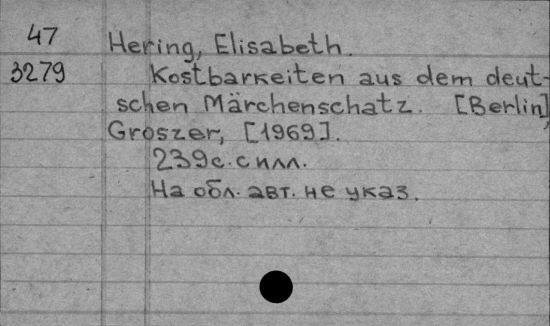 47
Hering, Elisabeth.
3279 Kostbarkeiten aus dem deut-
schen Märchenschatz. [Berlin],
Groszer, [1969].
239с. с илл.
На обл. авт. не указ.